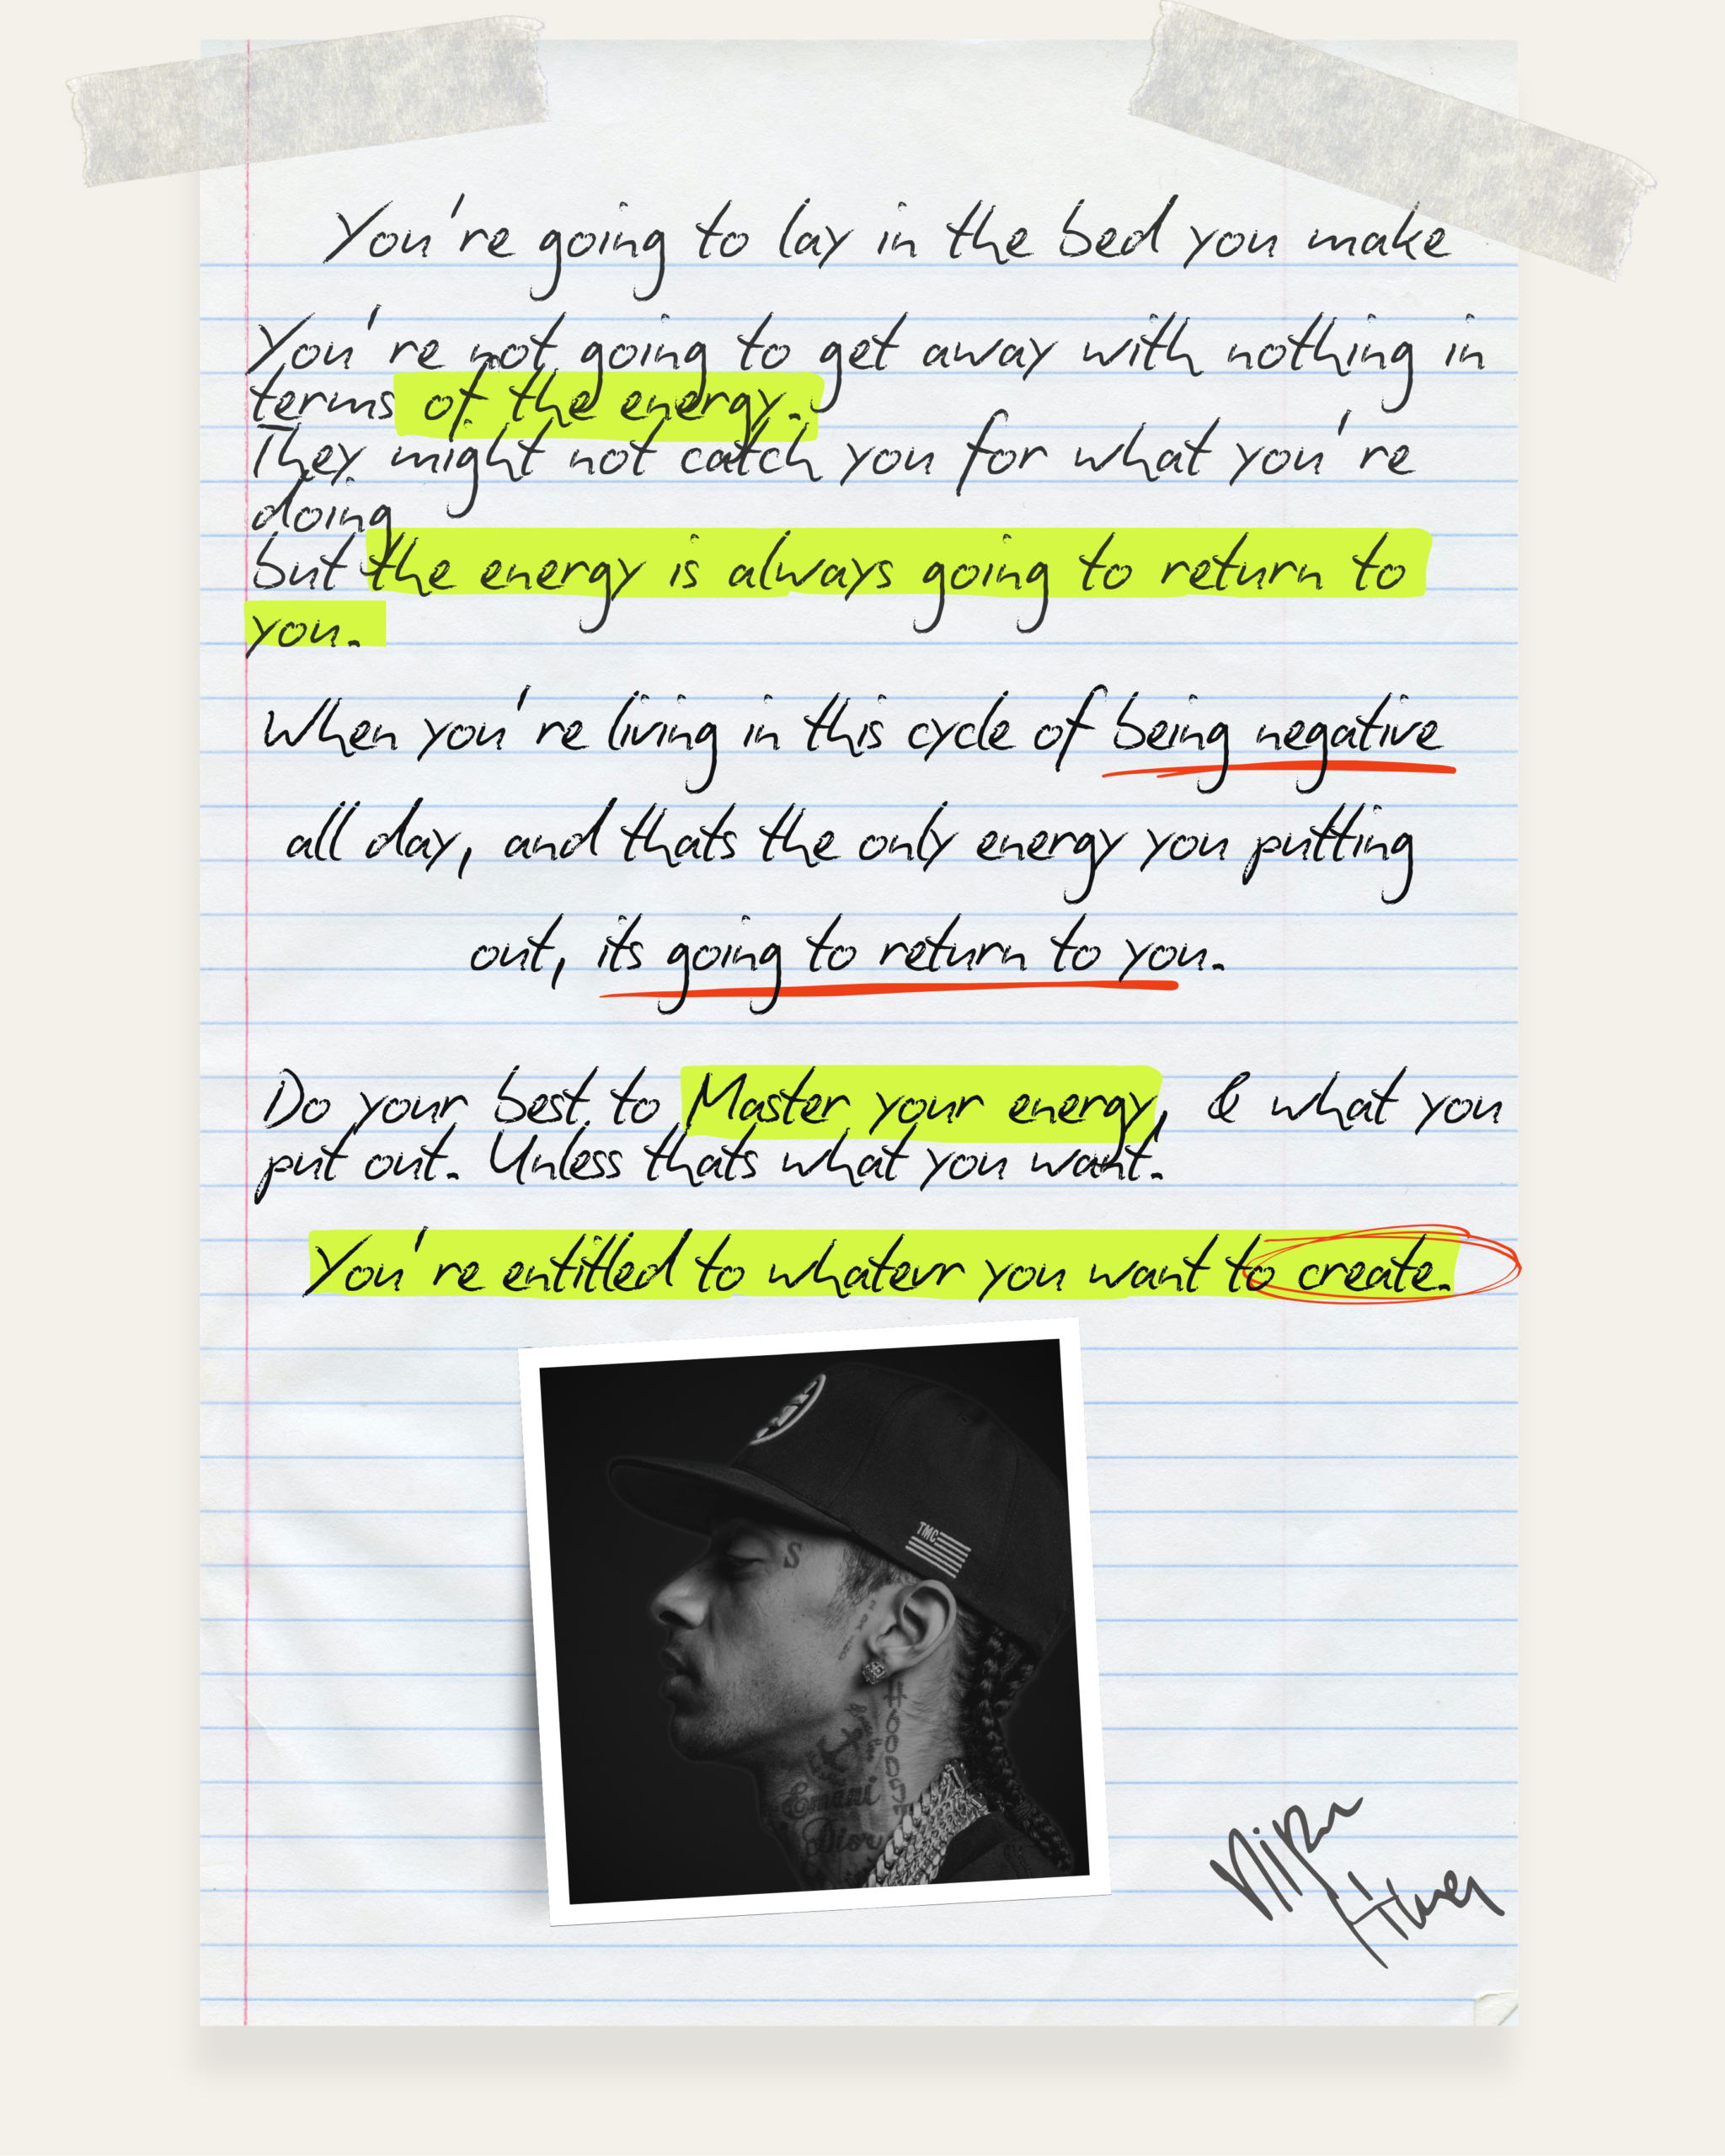 You're going to lay in the bed you make
You're not going to get away with nothing in
terms of the energy.
They might not catch you for what you're
doing
but the energy is always going to return to
you.
When you're living in this cycle of being negative
all day, and thats the only energy you putting
out, its going to return to you.
Do your best to Master your energy, & what you
put out. Unless thats what you want.
You're entitled to whatevr you want to create.
TMC
S
HOOD
Emani
Dior